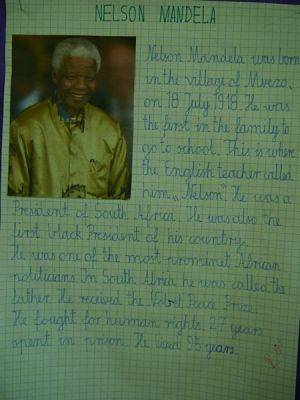 NELSON MANDELA
Nelson Mandela was born
in the village of Mvezo,
on 18 July 1918. He was
the first in the family to
go to school. This is where
the English teacher called
him „Nelson". He was a
President of South Africa. He was also the
first black President of his country.
He was one of the most prominet African
politicians. In South Africa he was called the
father. He recived the Nobel Peace Prize.
He fought for human rights. 27 years
spent in prison. He lived 95 years.